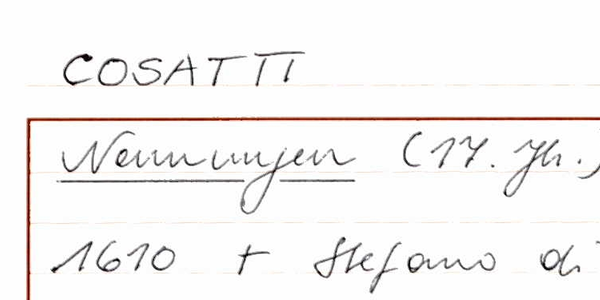 COSATTI
Nennungen (17. Jh.)
1610 + Stefano di